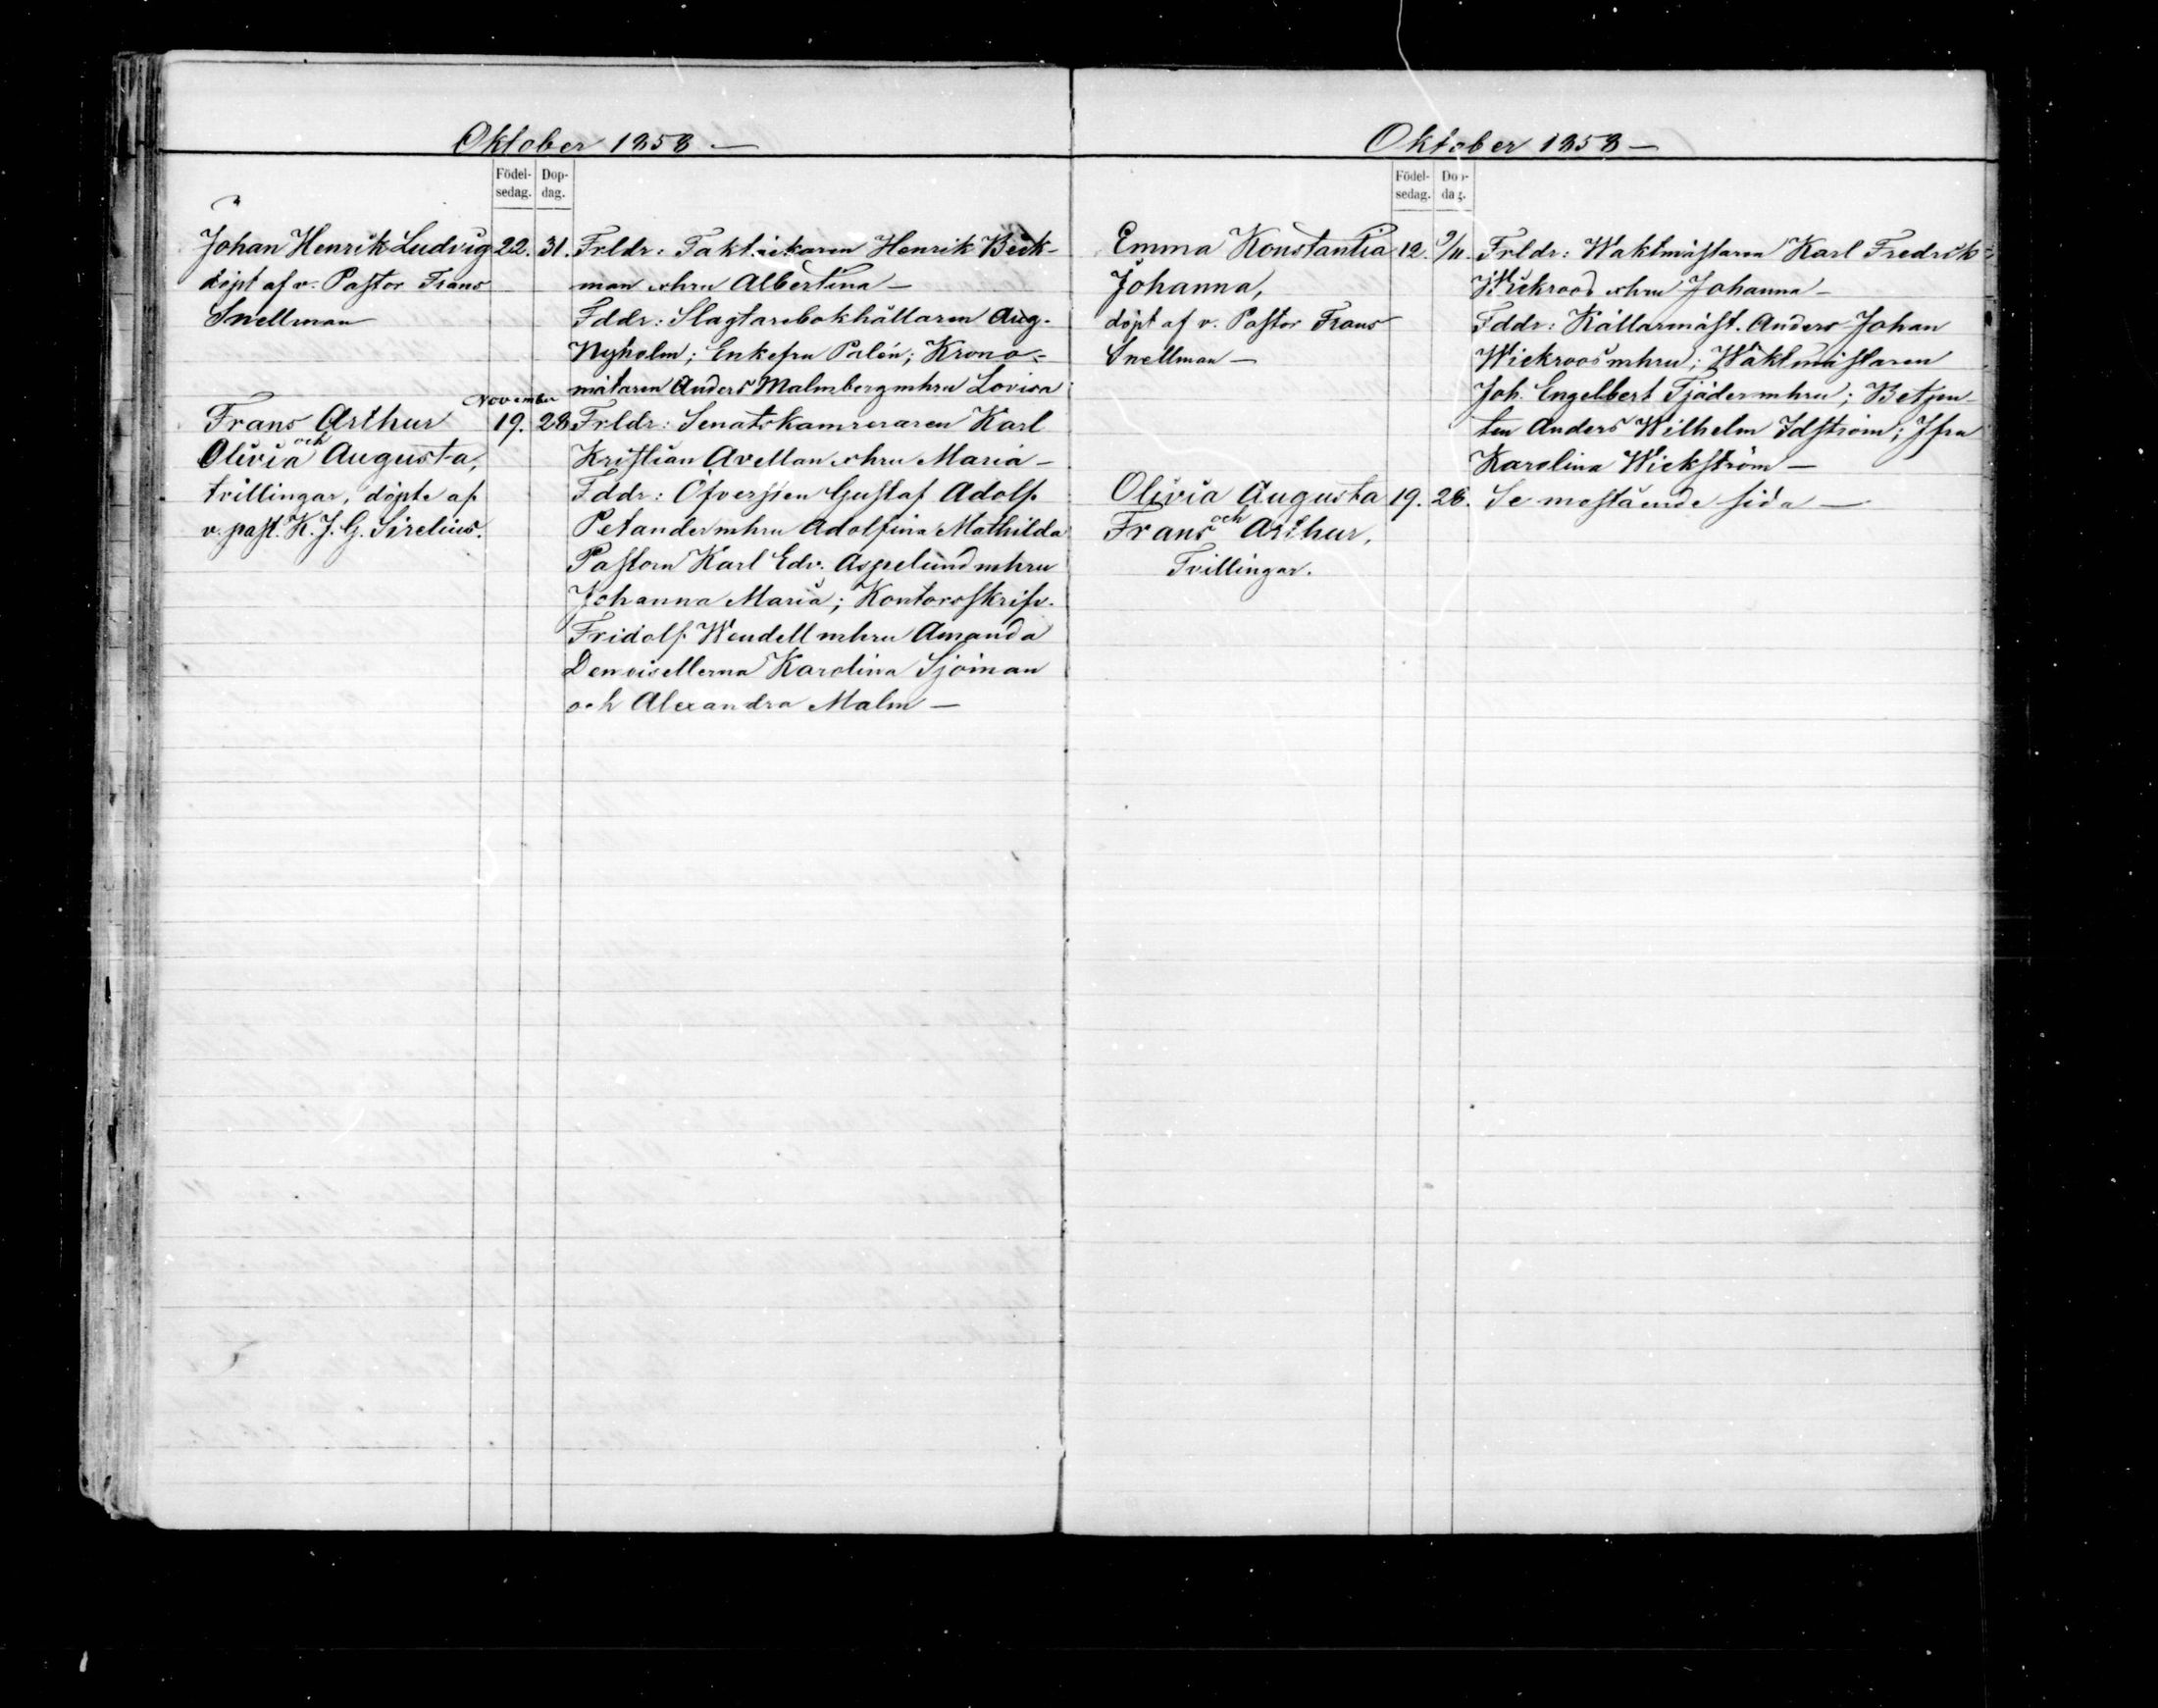 Oktober 1858 —
Födel-
sedag.
Dop-
dag.
Johan Henrik Ludvig 22. 31. Frldr: Taktäckaren Henrik Beck-
döpt af v. Pastor Frans man o hru Albertina —
Snellman Fddr: Slagtarebokhållaren Aug.
Nyholm; Enkefru Palén; Krono-
mätaren Anders Malmberg mhru Lovisa
November
Frans Arthur 19. 28 Frldr: Senatskamreraren Karl
och
Olivia Augusta, Kristian Avellan o hru Maria —
tvillingar, döpte af Fddr: Öfversten Gustaf Adolf
v. past. K. J. G. Sirelius. Petander mhru Adolfina Mathilda
Pastorn Karl Edv. Aspelund mhru
Johanna Maria; Kontorsskrifv.
Fridolf Wendell mhru Amanda
Demoisellerna Karolina Sjöman
och Alexandra Malm —
Oktober 1858 —
Födel-
sedag.
Dop-
dag.
Emma Konstantia 12. 9/11. Frldr: Waktmästaren Karl Fredrik
Johanna, Wickroos o hru Johanna —
döpt af v. Pastor Frans Fddr: Källarmäst. Anders Johan
Snellman — Wickroos mhru; Waktmästaren
Joh. Engelbert Tjäder mhru; Betjen-
ten Anders Wilhelm Idström; Jfru
Karolina Wickström —
Olivia Augusta 19. 28. Se motstående sida —
och
Frans Arthur,
Tvillingar.